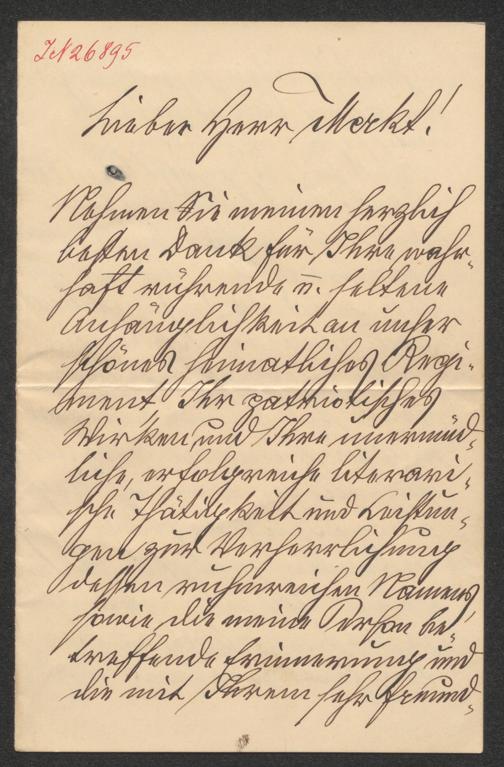 IN 26895
Lieber Herr Merkt!
Nehmen Sie meinen herzlich
besten Dank für Ihre wahr-
haft rührende u. seltene
Anhänglichkeit an unser
schönes heimatliches Regi-
ment Ihr patriotisches
Wirken und Ihre unermüd-
liche, erfolgreiche literari-
sche Thätigkeit und Leistun-
gen zur Verherrlichung
dessen ruhmreichen Namens,
sowie die meine Person be-
treffende Erinnerung und
die mit Ihrem sehr freund-